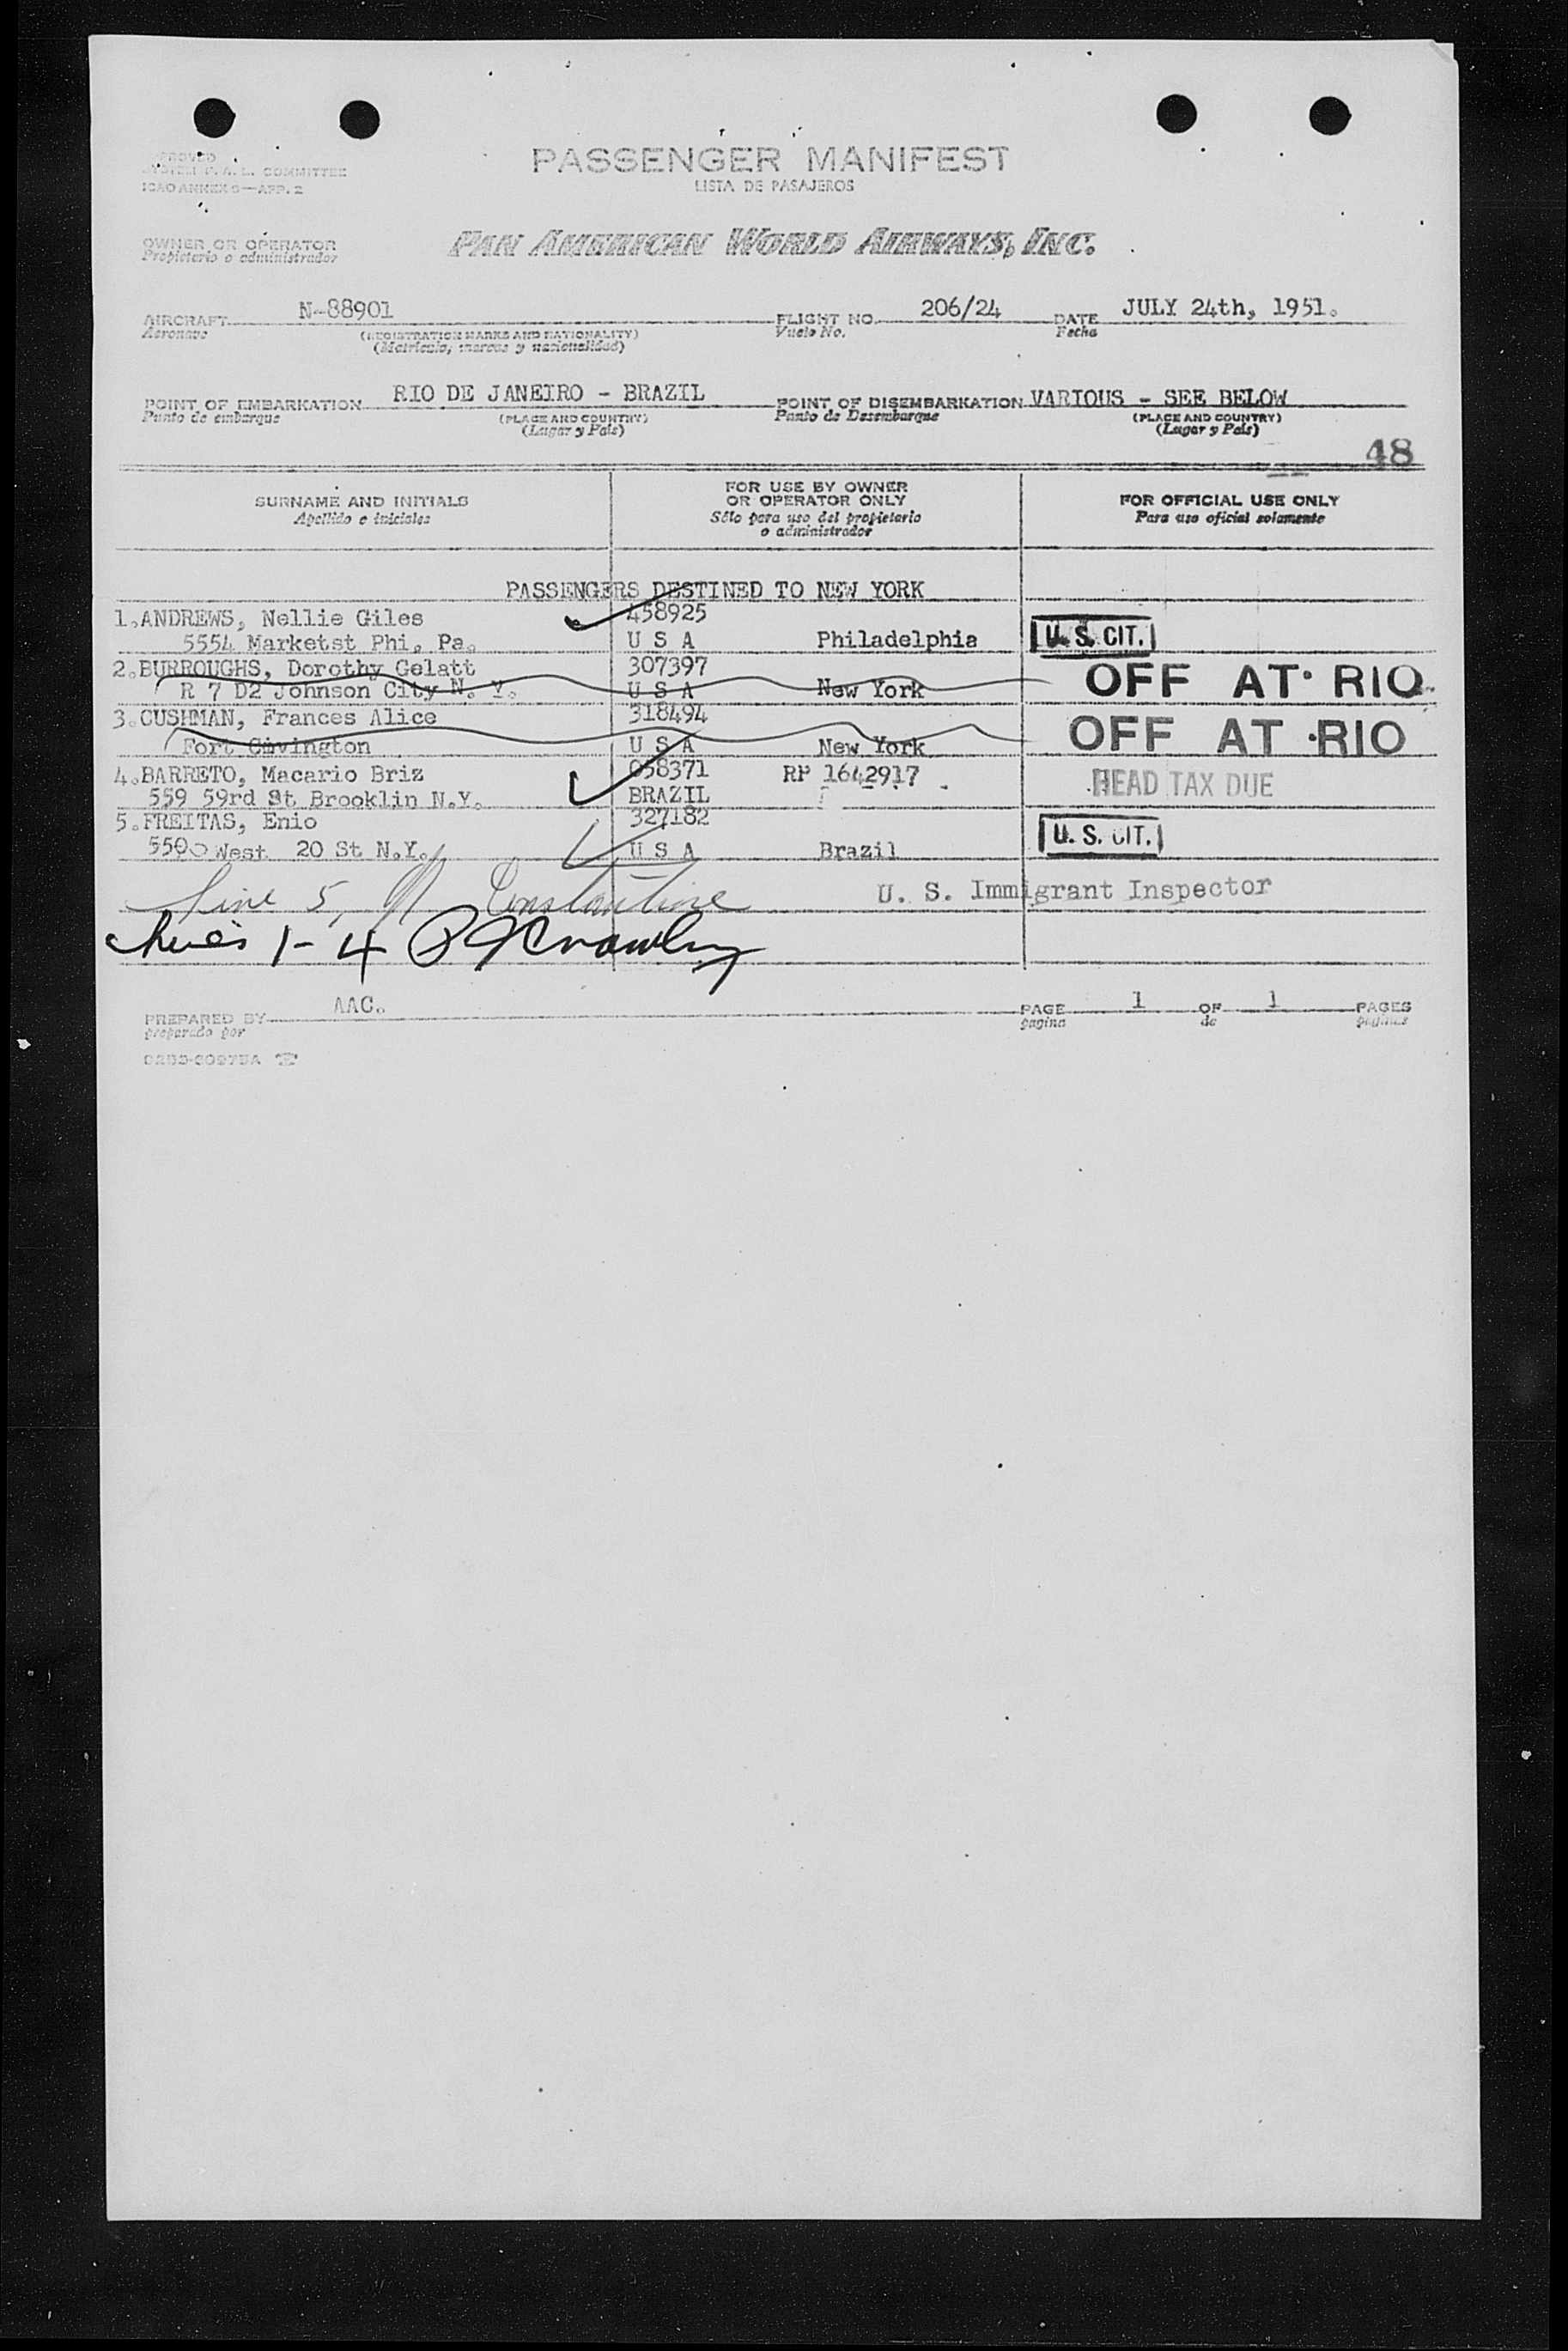 PASSENGER MANIFEST
LISTA DE PASAJEROS
COMMITTEE
ICAO ANNEX 9—APP. 2
OWNER OR OPERATOR
Propietario o administrador
PAN AMERICAN WORLD AIRWAYS, INC.
AIRCRAFT N-88901 FLIGHT NO. 206/24 DATE JULY 24th, 1951.
Aeronave (REGISTRATION MARKS AND NATIONALITY) Vuelo No. Fecha
(Matricula, marcas y nacionalidad)
POINT OF EMBARKATION RIO DE JANEIRO - BRAZIL POINT OF DISEMBARKATION VARIOUS - SEE BELOW
Punto de embarque (PLACE AND COUNTRY) Punto de Desembarque (PLACE AND COUNTRY)
(Lugar y País) (Lugar y País)
48
SURNAME AND INITIALS
Apellido e iniciales
FOR USE BY OWNER
OR OPERATOR ONLY
Sólo para uso del propietario
o administrador
FOR OFFICIAL USE ONLY
Para uso oficial solamente
PASSENGERS DESTINED TO NEW YORK
1.ANDREWS, Nellie Giles 458925
5554 Marketst Phi. Pa. U S A Philadelphia U. S. CIT.
2.BURROUGHS, Dorothy Gelatt 307397
R 7 D2 Johnson City N. Y. U S A New York OFF AT RIO
3.CUSHMAN, Frances Alice 318494
Fort Covington U S A New York OFF AT RIO
4.BARRETO, Macario Briz 058371 RP 1642917
559 59rd St Brooklin N.Y. BRAZIL HEAD TAX DUE
5.FREITAS, Enio 327182
5500 West 20 St N.Y. U S A Brazil U. S. CIT.
Line 5, Constantine U. S. Immigrant Inspector
1-4
PREPARED BY AAC. PAGE 1 OF 1 PAGES
preparado por pagina de paginas